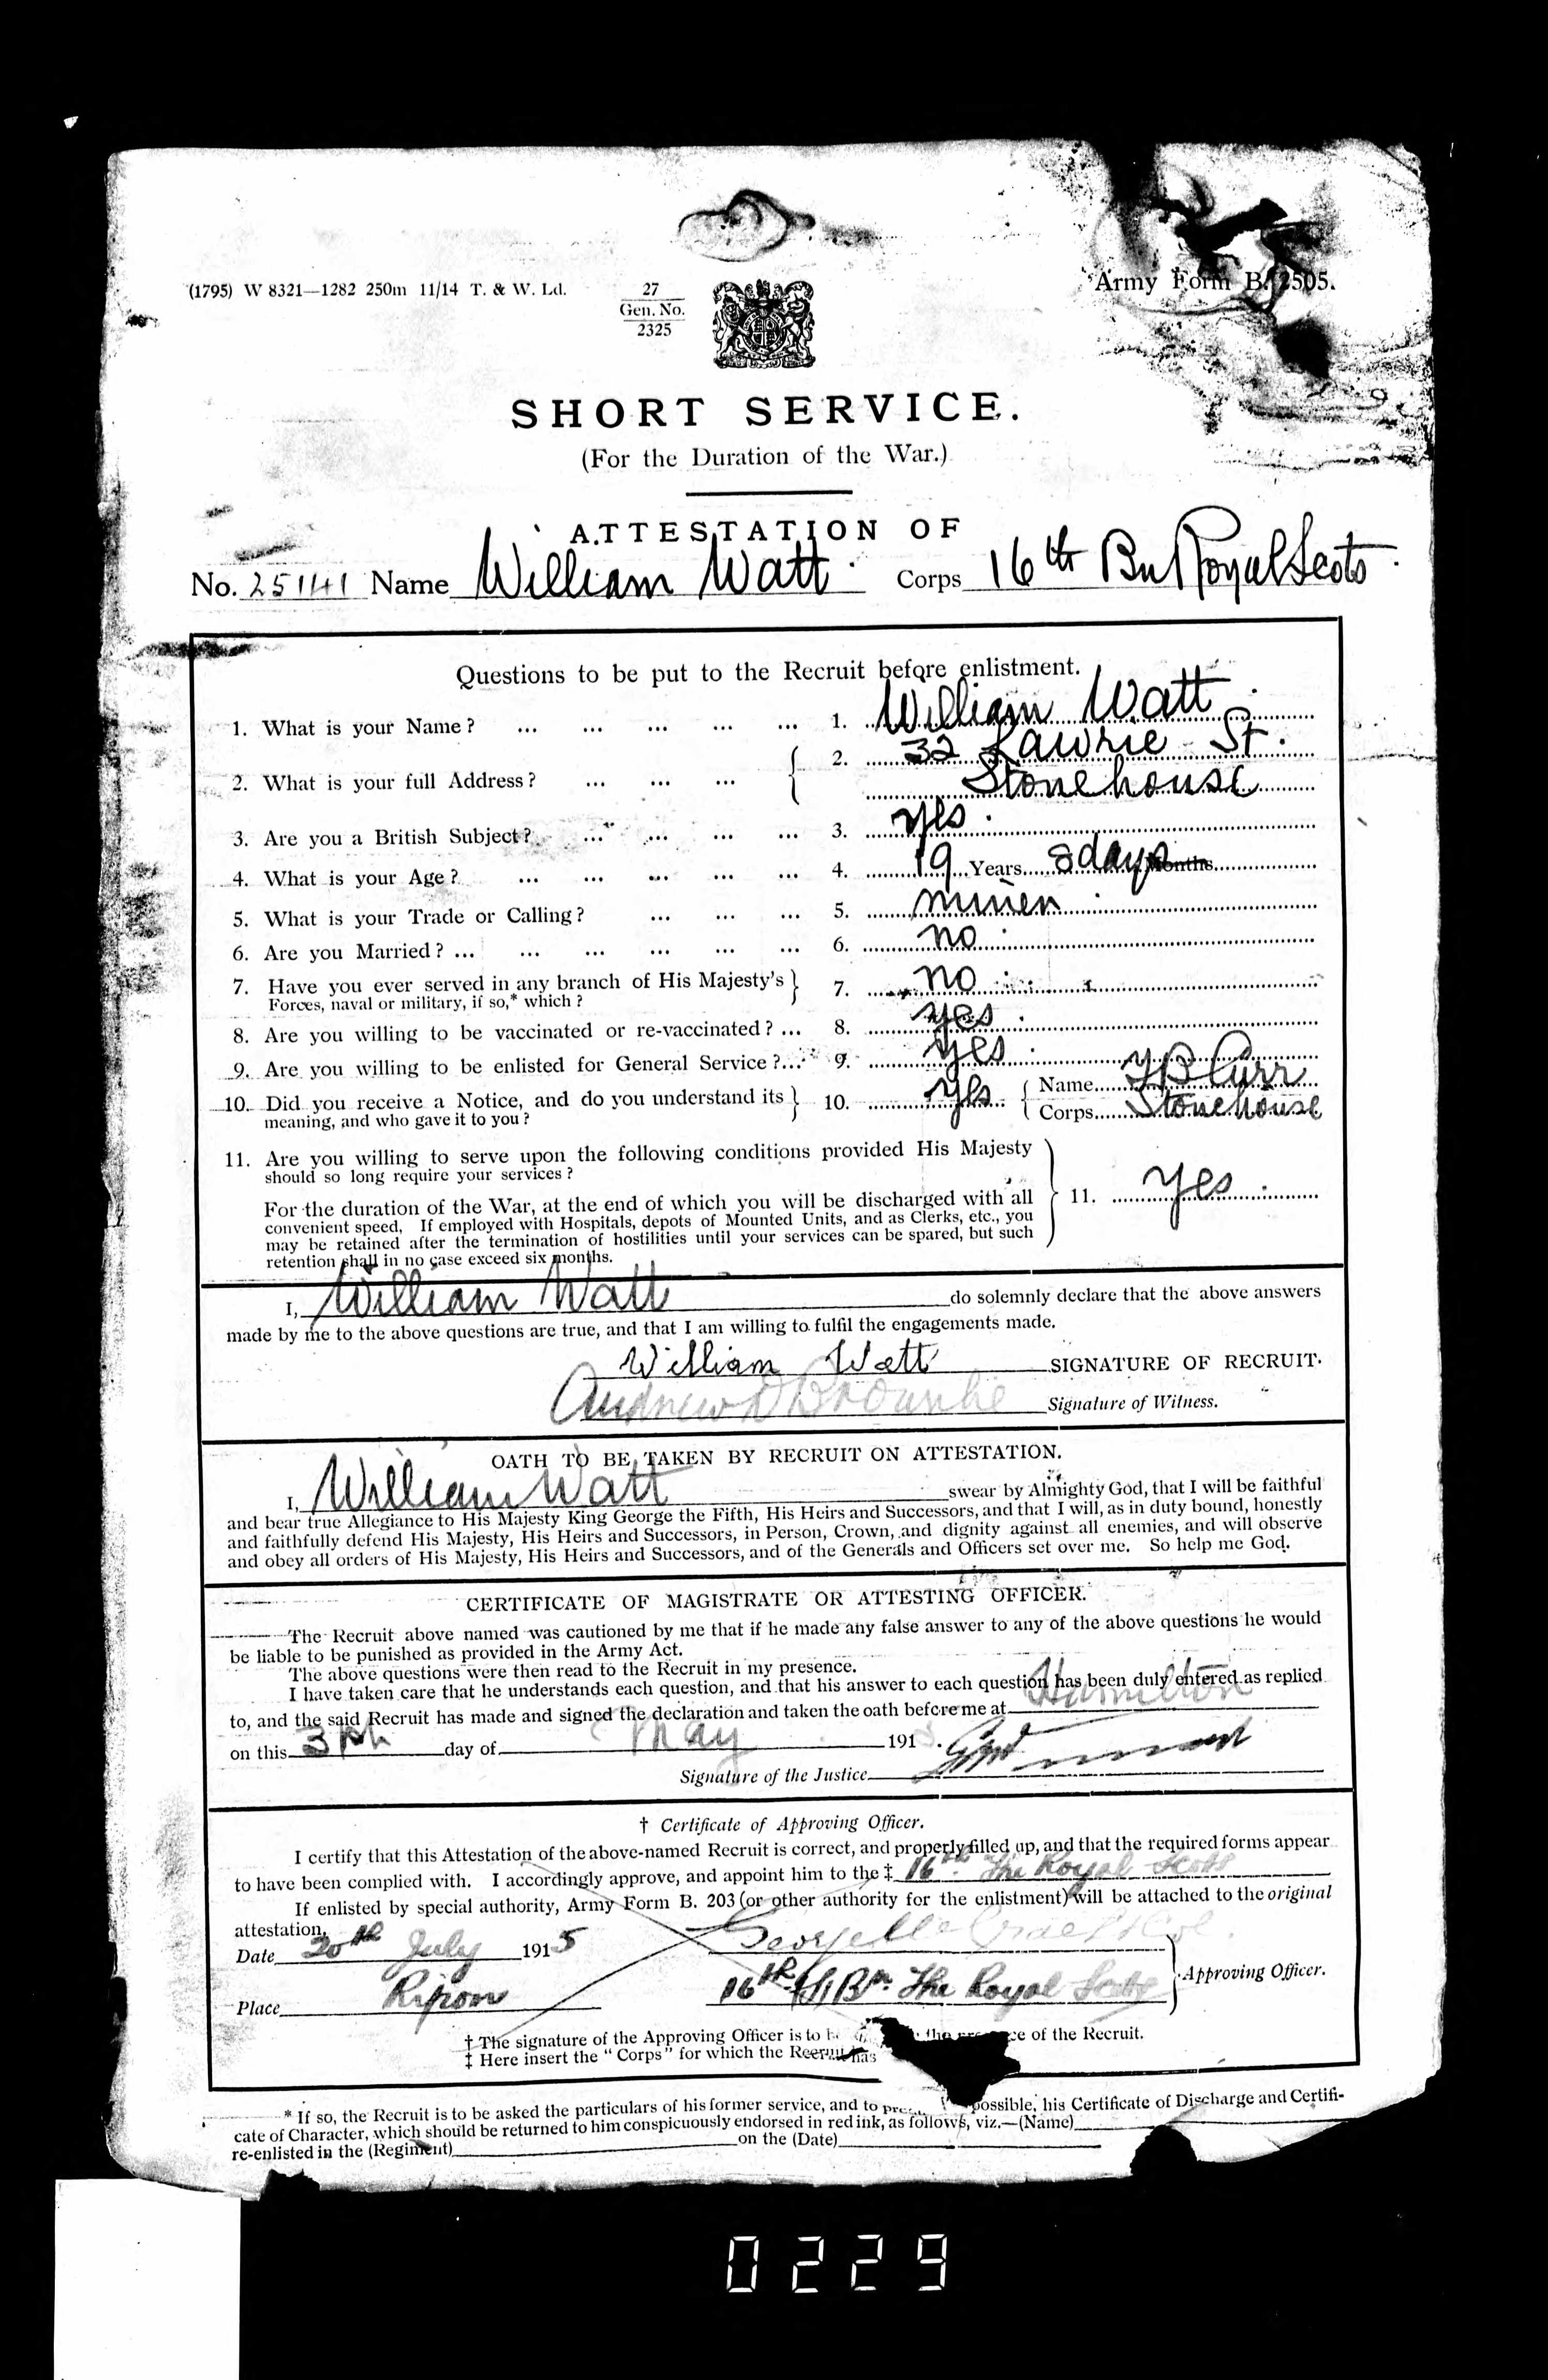 (1795) W 8321—1282 250m 11/14 T. & W. Ld.
27
Gen. No.
2325
Army Form B. 2505.
SHORT SERVICE.
(For the Duration of the War.)
ATTESTATION OF
No. 25141 Name William Watt Corps 16th Bn Royal Scots
Questions to be put to the Recruit before enlistment.
1. What is your Name? ... ... ... ... ... 1. William Watt
2. What is your full Address? ... ... ... 2. 32 Lawrie St.
Stonehouse
3. Are you a British Subject? ... ... ... ... 3. yes.
4. What is your Age? ... ... ... ... ... 4. 19 Years 8 days Months
5. What is your Trade or Calling? ... ... ... 5. miner
6. Are you Married? ... ... ... ... ... ... 6. no
7. Have you ever served in any branch of His Majesty's } 7. no
Forces, naval or military, if so,* which?
8. Are you willing to be vaccinated or re-vaccinated? ... 8. yes.
9. Are you willing to be enlisted for General Service? ... 9. yes
10. Did you receive a Notice, and do you understand its } 10. yes { Name Curr
meaning, and who gave it to you? Corps Stonehouse
11. Are you willing to serve upon the following conditions provided His Majesty
should so long require your services?
For the duration of the War, at the end of which you will be discharged with all } 11. yes.
convenient speed. If employed with Hospitals, depots of Mounted Units, and as Clerks, etc., you
may be retained after the termination of hostilities until your services can be spared, but such
retention shall in no case exceed six months.
I, William Watt do solemnly declare that the above answers
made by me to the above questions are true, and that I am willing to fulfil the engagements made.
William Watt SIGNATURE OF RECRUIT.
Andrew Signature of Witness.
OATH TO BE TAKEN BY RECRUIT ON ATTESTATION.
I, William Watt swear by Almighty God, that I will be faithful
and bear true Allegiance to His Majesty King George the Fifth, His Heirs and Successors, and that I will, as in duty bound, honestly
and faithfully defend His Majesty, His Heirs and Successors, in Person, Crown, and dignity against all enemies, and will observe
and obey all orders of His Majesty, His Heirs and Successors, and of the Generals and Officers set over me. So help me God.
CERTIFICATE OF MAGISTRATE OR ATTESTING OFFICER.
The Recruit above named was cautioned by me that if he made any false answer to any of the above questions he would
be liable to be punished as provided in the Army Act.
The above questions were then read to the Recruit in my presence.
I have taken care that he understands each question, and that his answer to each question has been duly entered as replied
to, and the said Recruit has made and signed the declaration and taken the oath before me at Hamilton
on this day of May 191 .
Signature of the Justice
† Certificate of Approving Officer.
I certify that this Attestation of the above-named Recruit is correct, and properly filled up, and that the required forms appear
to have been complied with. I accordingly approve, and appoint him to the ‡ 16th The Royal Scots
If enlisted by special authority, Army Form B. 203 (or other authority for the enlistment) will be attached to the original
attestation.
Date 20th July 1915 George
Place Ripon 16th (S) Bn. The Royal Scots } Approving Officer.
† The signature of the Approving Officer is to the presence of the Recruit.
‡ Here insert the "Corps" for which the Recruit has
* If so, the Recruit is to be asked the particulars of his former service, and to possible, his Certificate of Discharge and Certifi-
cate of Character, which should be returned to him conspicuously endorsed in red ink, as follows, viz.—(Name)
re-enlisted in the (Regiment) on the (Date)
0229